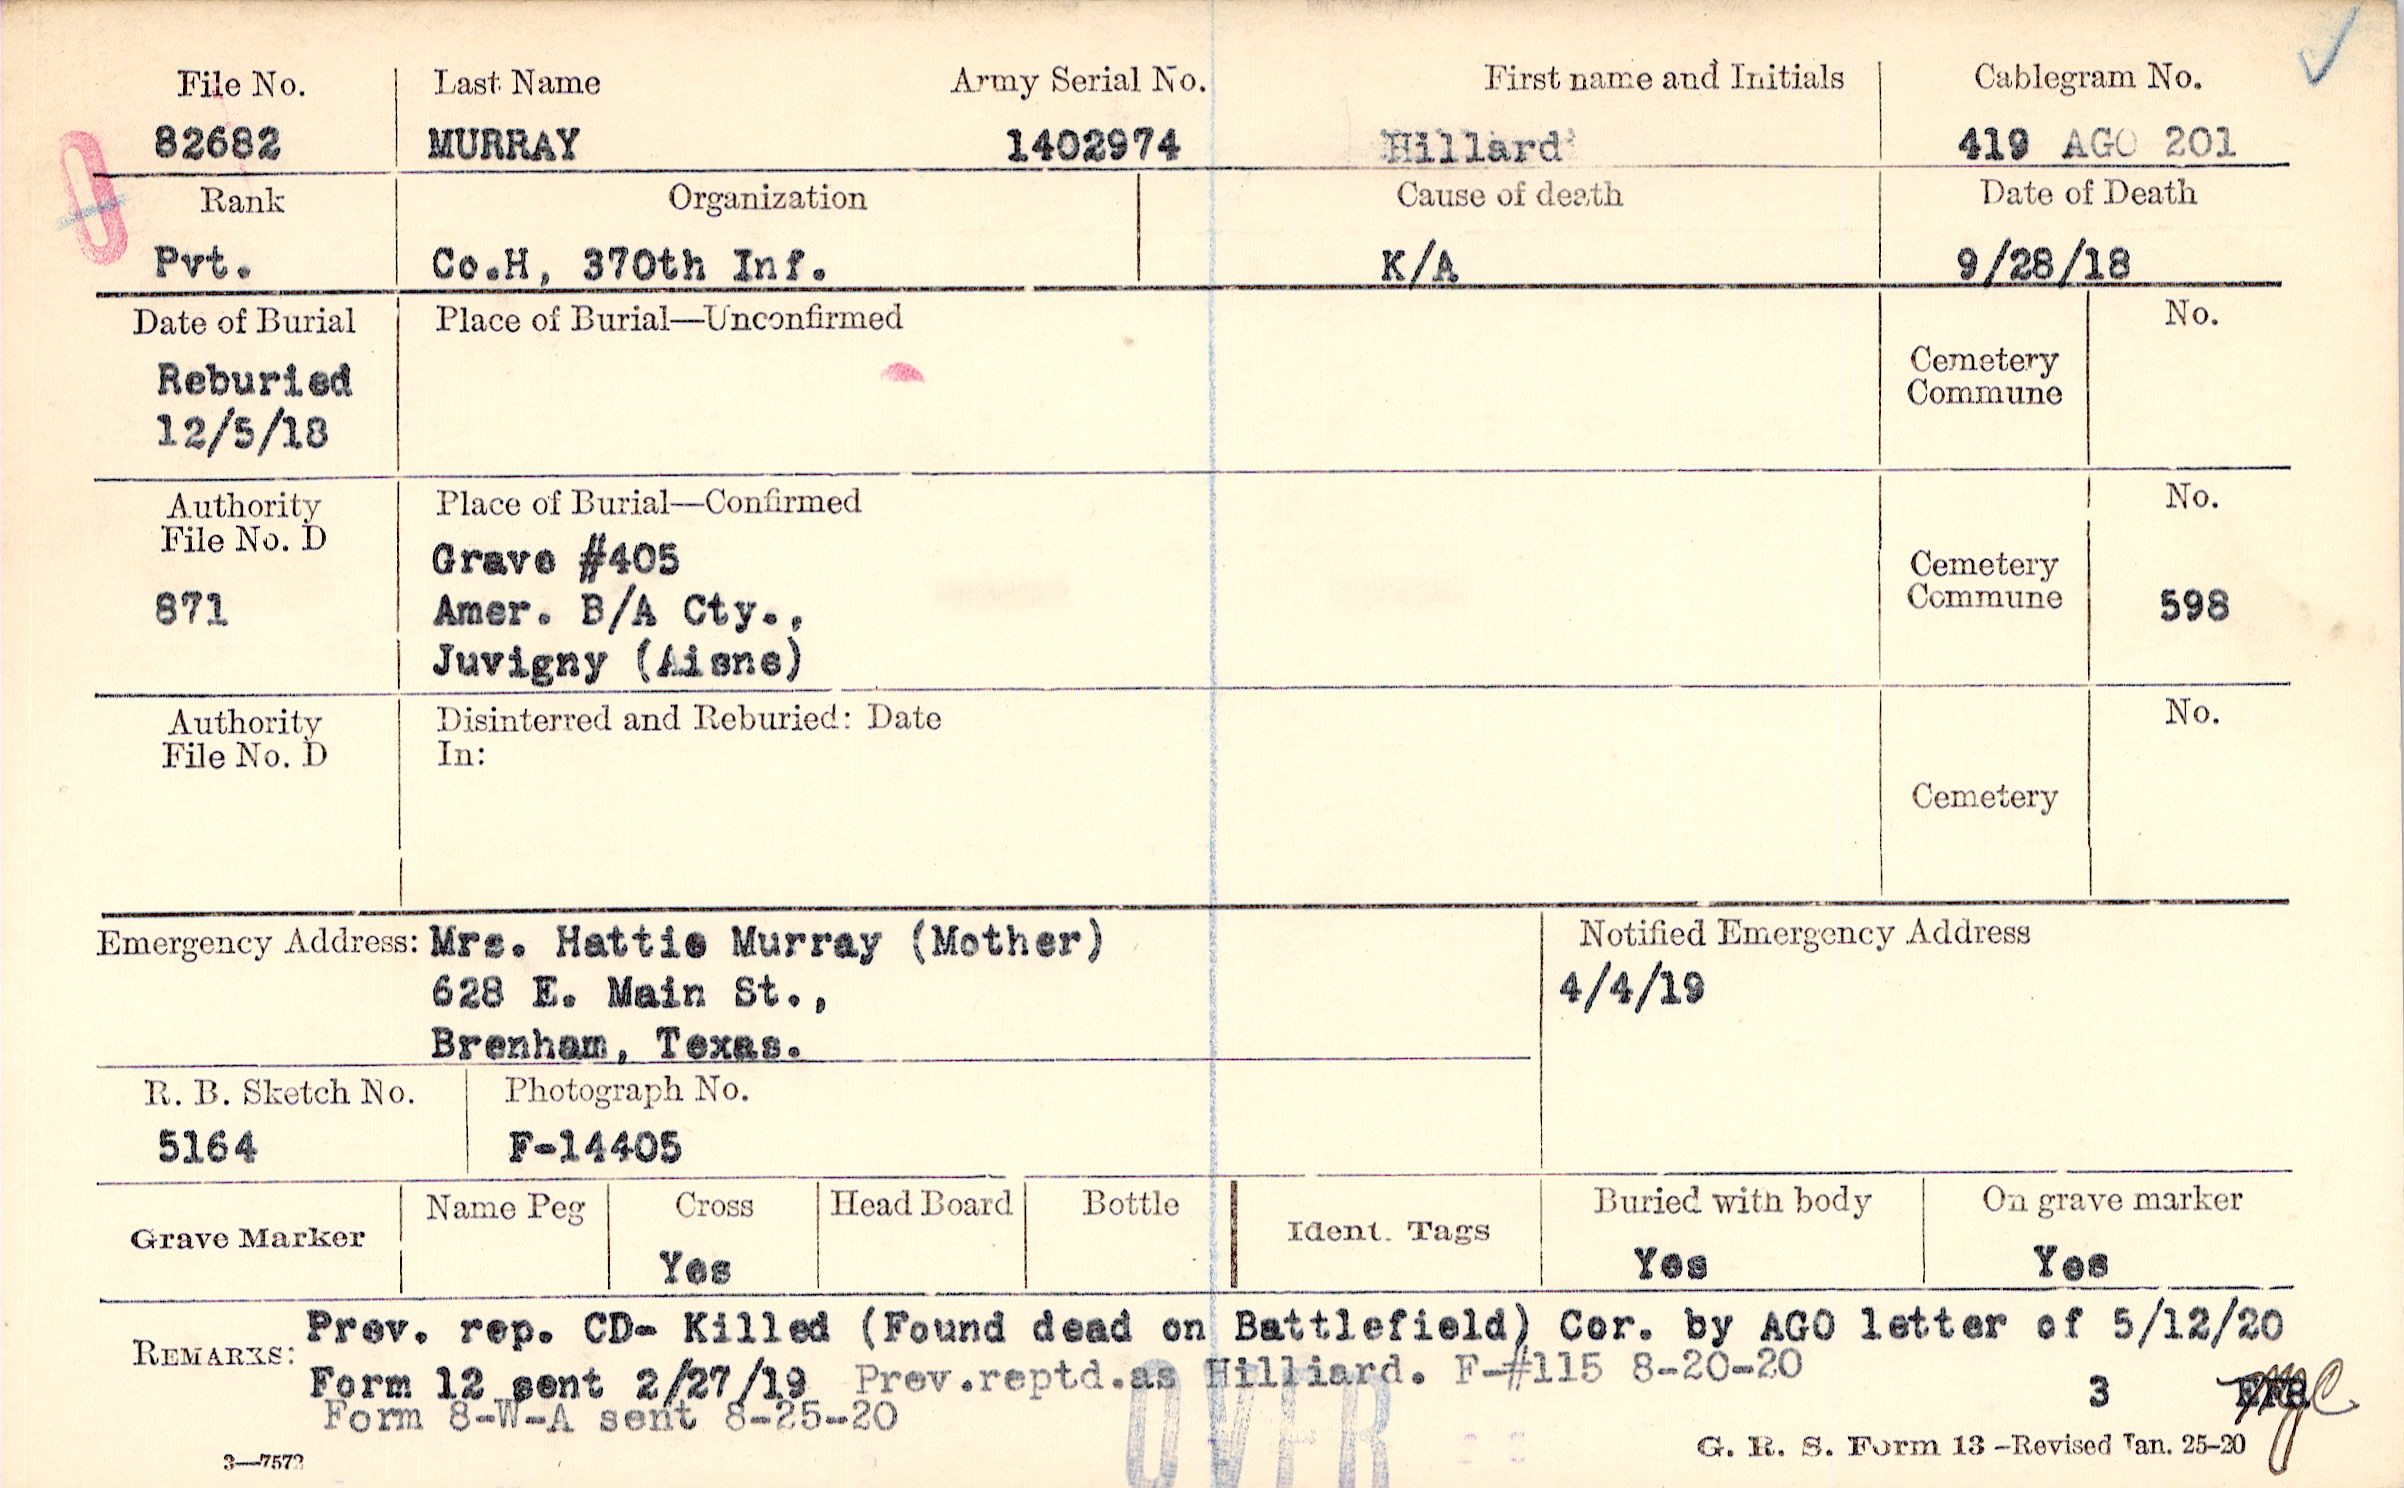 File No. Last Name Army Serial No. First name and Initials Cablegram No.
82682 MURRAY 1402974 Hillard 419 AGO 201
Rank Organization Cause of death Date of Death
Pvt. Co.H, 370th Inf. K/A 9/28/18
Date of Burial Place of Burial—Unconfirmed No.
Reburied
12/5/18
Cemetery
Commune
Authority Place of Burial—Confirmed No.
File No. D
Grave #405
871 Amer. B/A Cty.,
Juvigny (Aisne)
Cemetery
Commune 598
Authority Disinterred and Reburied: Date No.
File No. D In:
Cemetery
Emergency Address: Mrs. Hattie Murray (Mother)
628 E. Main St.,
Brenham, Texas.
Notified Emergency Address
4/4/19
R. B. Sketch No. Photograph No.
5164 F-14405
Grave Marker Name Peg Cross Head Board Bottle Ident. Tags Buried with body On grave marker
Yes Yes Yes
REMARKS: Prev. rep. CD- Killed (Found dead on Battlefield) Cor. by AGO letter of 5/12/20
Form 12 sent 2/27/19 Prev.reptd.as Hilliard. F-#115 8-20-20
Form 8-W-A sent 8-25-20
3
OVER
3—7573
G. R. S. Form 13 -Revised Jan. 25-20